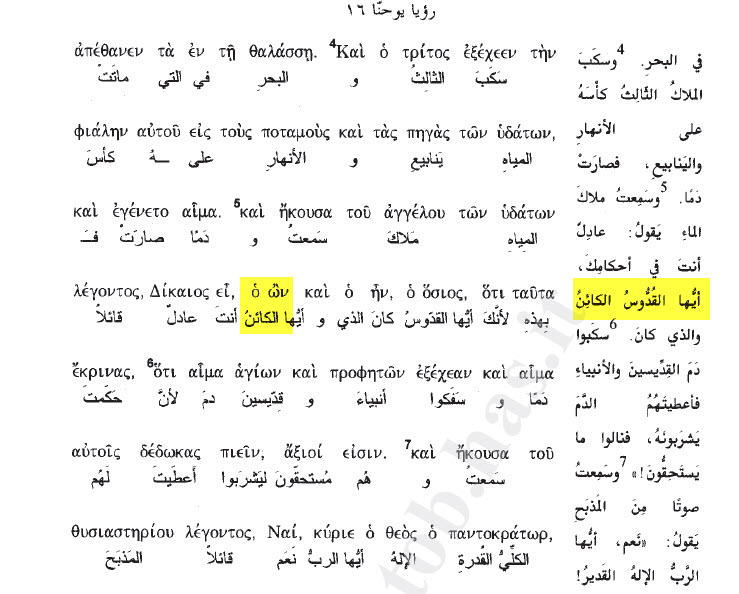 رؤيا يوحنّا ١٦
ἀπέθανεν τὰ ἐν τῇ θαλάσσῃ. ⁴Καὶ ὁ τρίτος ἐξέχεεν τὴν
سَكَبَ الثالِثُ و البحرِ في التي ماتَتْ
φιάλην αὐτοῦ εἰς τοὺς ποταμοὺς καὶ τὰς πηγὰς τῶν ὑδάτων,
المياهِ يَنابيعِ و الأنهارِ على ـهُ كأسَ
καὶ ἐγένετο αἷμα. ⁵καὶ ἤκουσα τοῦ ἀγγέλου τῶν ὑδάτων
المِياهِ مَلاكَ سَمعتُ و دَمًا صارَتْ فَـ
λέγοντος, Δίκαιος εἶ, ὁ ὢν καὶ ὁ ἦν, ὁ ὅσιος, ὅτι ταῦτα
بِهذِهِ لأنَّكَ أيُّها القدّوسُ كانَ الذي و أيُّها الكائنُ أنتَ عادلٌ قائلاً
ἔκρινας, ⁶ὅτι αἷμα ἁγίων καὶ προφητῶν ἐξέχεαν καὶ αἷμα
دَمًا و سَفَكوا أنبياءَ و قِدّيسين دمَ لأنَّ حَكَمتَ
αὐτοῖς δέδωκας πιεῖν, ἄξιοί εἰσιν. ⁷καὶ ἤκουσα τοῦ
سَمعتُ و هُم مُستحقّونَ لِيَشرَبوا أعطَيتَ لَهُم
θυσιαστηρίου λέγοντος, Ναί, κύριε ὁ θεὸς ὁ παντοκράτωρ,
الكلّيُّ القُدرةِ الإلهُ أيُّها الربُّ نَعَم قائلاً المَذبَحَ
في البحرِ. ⁴وسَكَبَ
الملاكُ الثّالِثُ كأْسَهُ
على الأنهارِ
واليَنابيعِ، فصارَتْ
دَمًا. ⁵وسَمِعتُ ملاكَ
الماءِ يَقولُ: عادِلٌ
أنتَ في أحكامِكَ،
أيُّها القُدُّوسُ الكائِنُ
والذي كانَ. ⁶سكَبوا
دَمَ القِدِّيسينَ والأنبياءِ
فأعطَيتَهُمُ الدَّمَ
يَشرَبونَهُ، فنالوا ما
يَستَحِقُّونَ!» ⁷وسَمِعتُ
صوتًا مِنَ المَذبَحِ
يَقولُ: «نَعم، أيُّها
الرَّبُّ الإلهُ القديرُ!